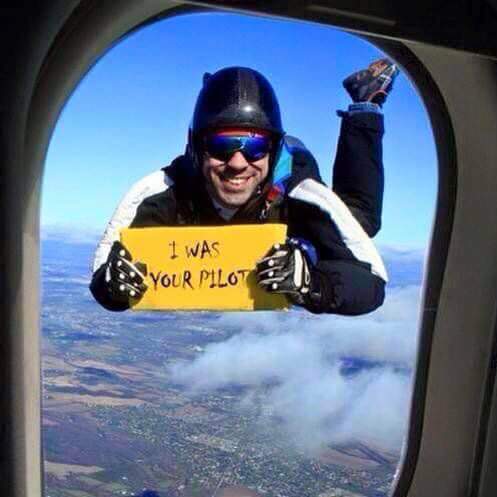 I WAS
YOUR PILOT